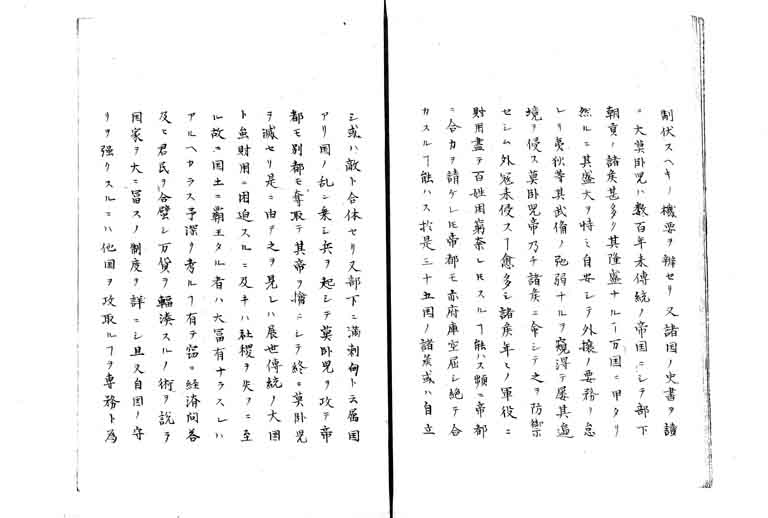 制伏スヘキノ機要ヲ辨セリ又諸国ノ史書ヲ讀
ニ大莫臥児ハ数百年来傳統ノ帝国ニシテ部下
朝貢ノ諸矦甚多ク其隆盛ナルヿ万国ニ甲タリ
然ルニ其盛大ヲ恃ミ自安シテ外攘ノ要務ヲ怠
レリ夷狄等其武備ノ弛弱ナルヲ窺得テ屢其邉
境ヲ侵ス莫臥児帝乃チ諸矦ニ命シテ之ヲ防禦
セシム外冦来侵スヿ愈多シ諸矦年々ノ軍役ニ
財用盡テ百姓困窮奈レ𪜈スルヿ能ハス頻ニ帝都
ニ合力ヲ請ケレ𪜈帝都モ亦府庫空屈シ絶テ合
力スルヿ能ハス於是三十五国ノ諸矦或ハ自立
シ或ハ敵ト合体セリ又部下ニ満剌甸ト云属国
アリ国ノ乱ニ乗シ兵ヲ起シテ莫臥児ヲ攻テ帝
都モ別都モ奪取テ其帝ヲ擒ニシテ終ニ莫臥児
ヲ滅セリ是ニ由テ之ヲ見レハ歴世傳統ノ大国
ト𪜈財用ニ困迫スルニ及キハ社稷ヲ失フニ至
ル故ニ国土ニ覇王タル者ハ大冨有ナラスレハ
アルヘカラス予深ク考ルヿ有テ窃ニ経済問答
及ヒ君民ヲ合壁シ万貨ヲ輻湊スルノ術ヲ説テ
国家ヲ大ニ冨スノ制度ヲ詳ニシ且又自国ノ守
リヲ强クスルニハ他国ヲ攻取ルヿヲ専務ト為